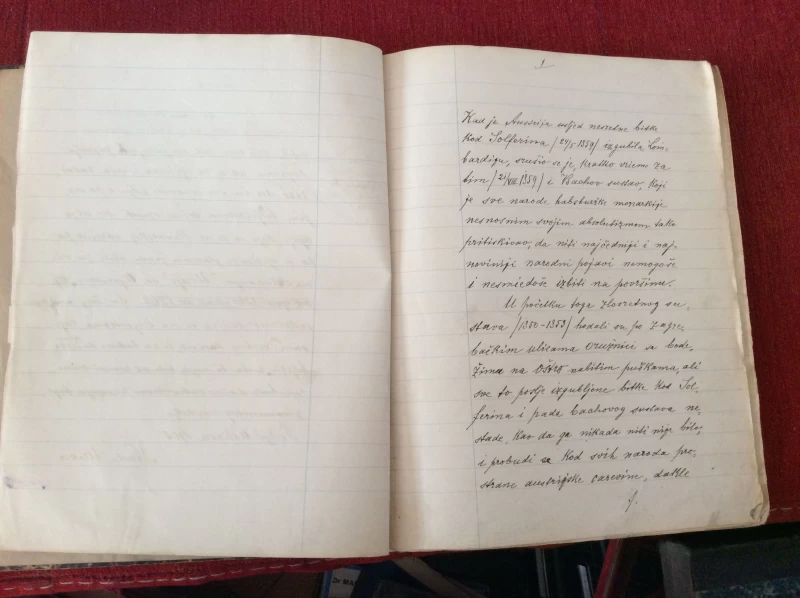 1
Kad je Austrija usljed nesretne bitke
kod Solferina /24/5 1859/ izgubila Lom-
bardiju, srušio se je, kratko vrieme za
tim /21/VIII 1859/ i Bachov sustav, koji
je sve narode habsburžke monarkije
nesnosnim svojim absolutizmom tako
pritiskivao, da niti najčedniji i naj-
neviniji narodni pojavi nemogoše
i nesmiedoše izbiti na površinu.
U početku toga zlosretnog su-
stava /1850-1853/ hodali su po zagre-
bačkim ulicama oružnici sa bode-
žima na oštro nabitim puškama, ali
sve to poslje izgubljene bitke kod Sol-
ferina i pada Bachovog sustava ne-
stade, kao da ga nikada niti nije bilo,
i probudi se kod svih naroda pro-
strane austrijske carevine, dakle
./.
Dr MA